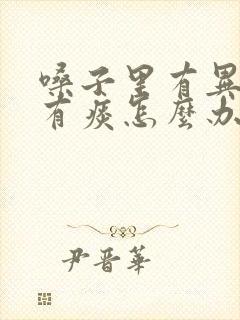 嗓子里有異
有痰怎麽办
尹晋華